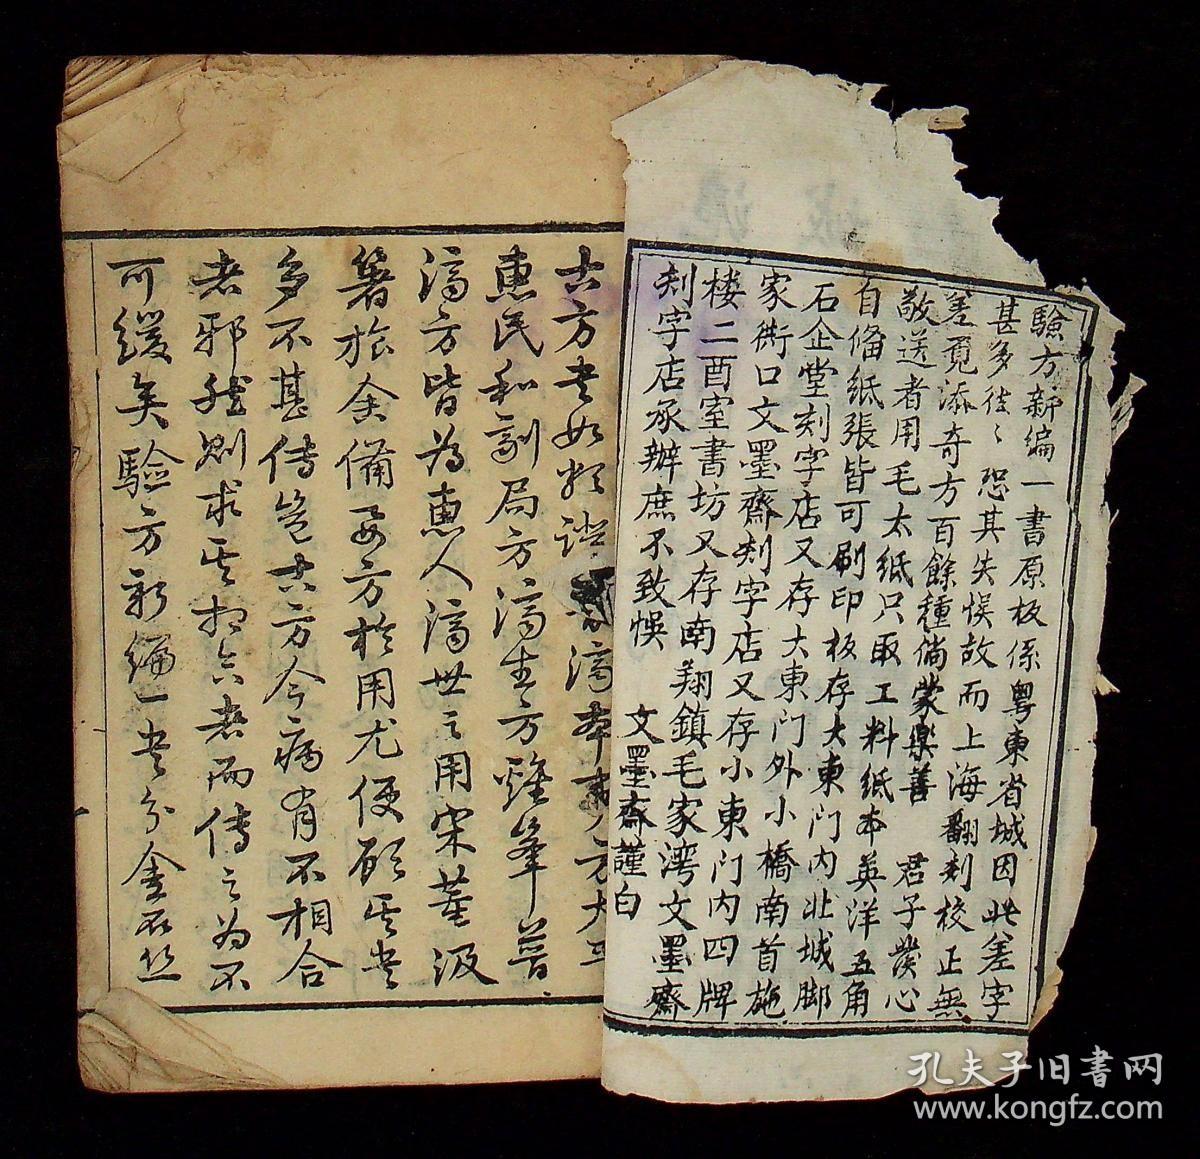 驗方新編一書原板係粵東省城因此差字
甚多往〻恐其失悮故而上海翻刻校正無
差覔添奇方百餘種倘蒙樂善 君子發心
敬送者用毛太紙只取工料紙本英洋五角
自俻紙張皆可刷印板存大東门内北城脚
石企堂刻字店又存大東门外小橋南首施
家衖口文墨齋刻字店又存小東门内四牌
楼二酉室書坊又存南翔鎮毛家湾文墨齋
刻字店承辦庶不致悞 文墨齋謹白
古方書如 證 濟本事方太平
惠民和劑局方濟生方雞峯普
濟方皆為惠人濟世之用宋董汲
著旅舍備要方於用尤便顧其書
多不甚傳豈古方今病有不相合
者邪然則求其相合者而傳之為不
可緩矣驗方新編一書分金石丝
孔夫子旧書网
www.kongfz.com